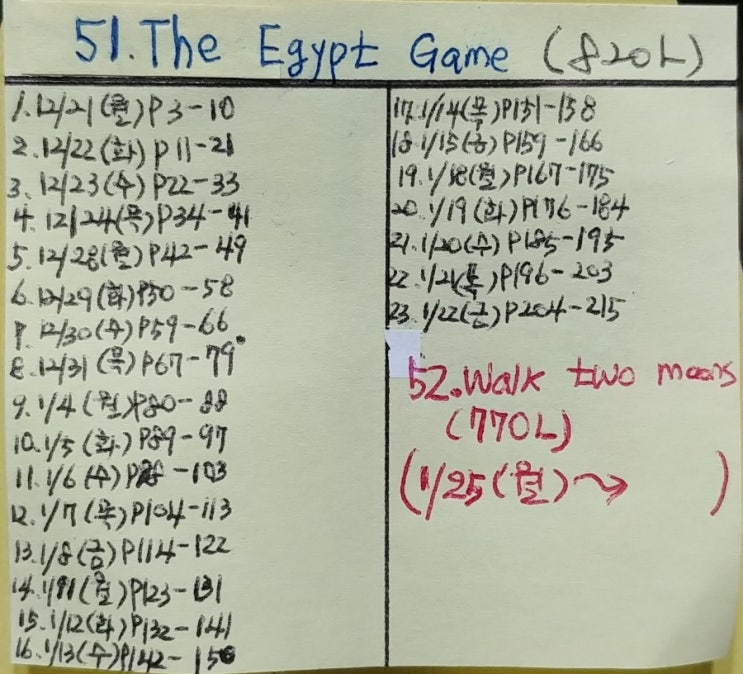 51. The Egypt Game (820L)
1. 12/21(월) P3-10
2. 12/22(화) P11-21
3. 12/23(수) P22-33
4. 12/24(목) P34-41
5. 12/28(월) P42-49
6. 12/29(화) P50-58
7. 12/30(수) P59-66
8. 12/31(목) P67-79
9. 1/4(월) P80-88
10. 1/5(화) P89-97
11. 1/6(수) P98-103
12. 1/7(목) P104-113
13. 1/8(금) P114-122
14. 1/11(월) P123-131
15. 1/12(화) P132-141
16. 1/13(수) P142-150
17. 1/14(목) P151-158
18. 1/15(금) P159-166
19. 1/18(월) P167-175
20. 1/19(화) P176-184
21. 1/20(수) P185-195
22. 1/21(목) P196-203
23. 1/22(금) P204-215
52. Walk two moons
(770L)
(1/25(월)~ )